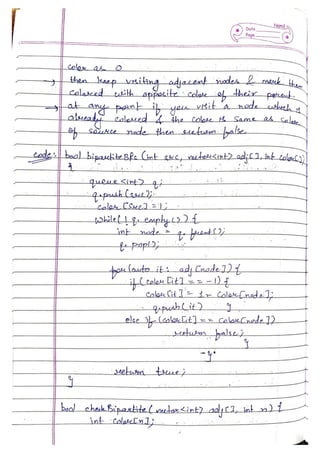 Date
Page
color as 0
→ then keep visiting adjacent nodes & mark them
colored with opposite color of their parent
→ at any point if you visit a node which is
already colored & the color is same as color
of source node then return false.
code: bool bipartiteBfs (int src, vector<int> adj[], int color[])
{
queue<int> q;
q.push(src);
color[src] = 1;
while(!q.empty()) {
int node = q.front();
q.pop();
for (auto it : adj[node]) {
if (color[it] == -1) {
color[it] = 1 - color[node];
q.push(it) }
else if (color[it] == color[node])
return false;
}
}
return true;
}
bool checkBipartite (vector<int> adj[], int n) {
int color[n];